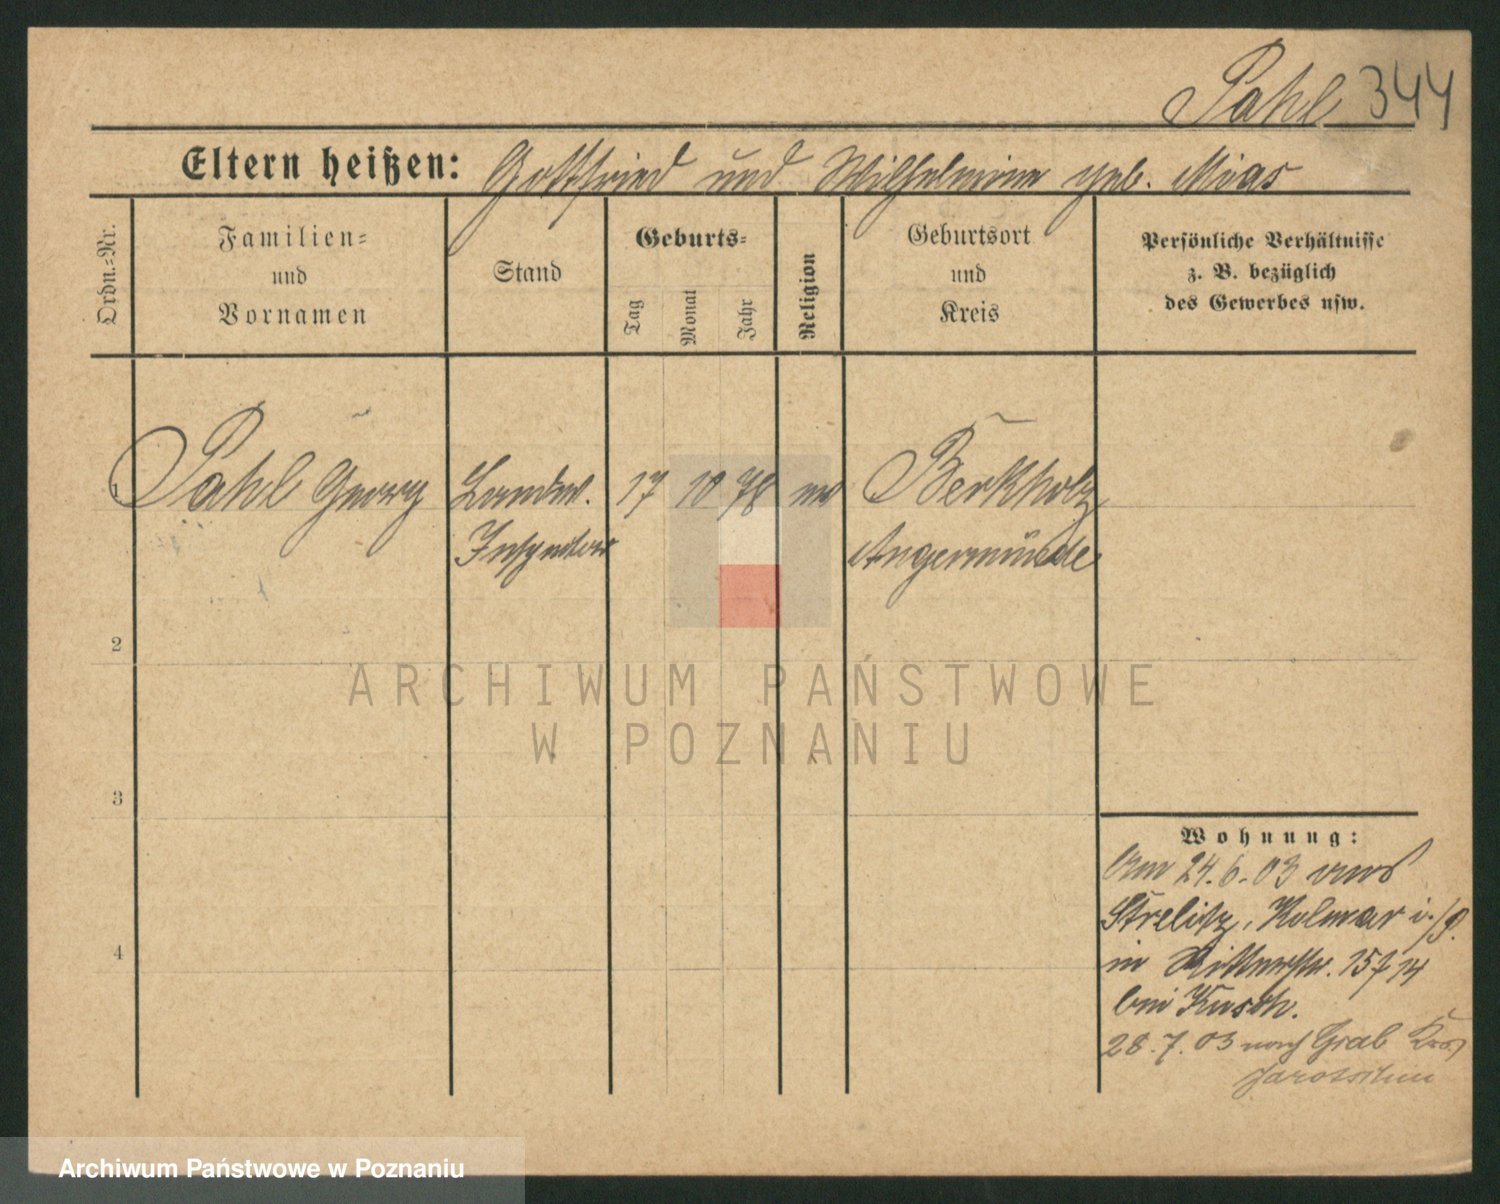 Pahl 344
Eltern heißen: Gottfried und Wilhelmine geb. Mias
Ordn.-Nr.
Familien-
und
Vornamen
Stand
Geburts-
Tag
Monat
Jahr
Religion
Geburtsort
und
Kreis
Persönliche Verhältnisse
z. B. bezüglich
des Gewerbes usw.
1 Pahl Georg Landw. 17 10 78 ev Berkholz
Inspektor Angermünde
2
ARCHIWUM PAŃSTWOWE
W POZNANIU
3
Wohnung:
Am 24.6.03 von
Strelitz, Kolmar i./P.
in Ritterstr.
4
bei Kusch.
28.7.03 nach Grab Krs
Jarotschin
Archiwum Państwowe w Poznaniu